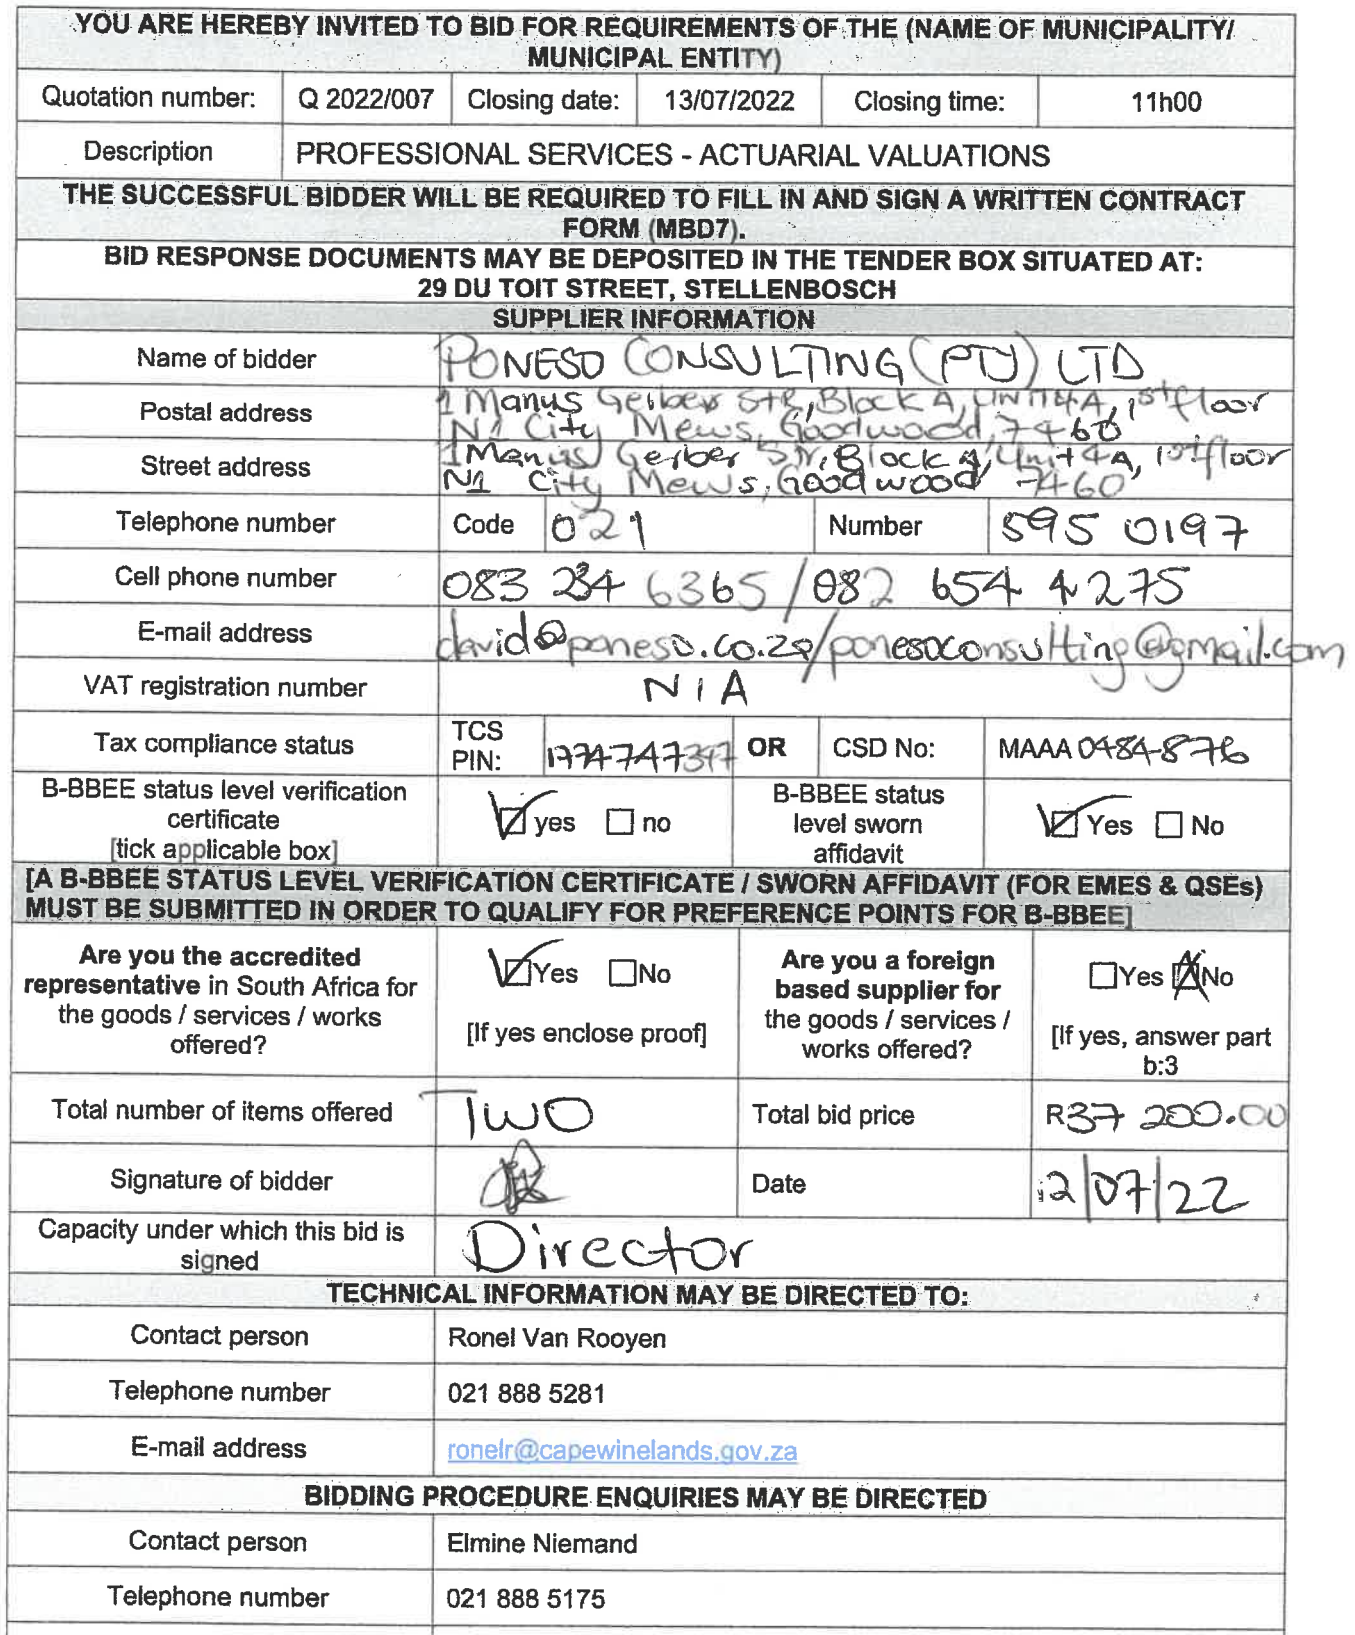 YOU ARE HEREBY INVITED TO BID FOR REQUIREMENTS OF THE (NAME OF MUNICIPALITY/
MUNICIPAL ENTITY)
Quotation number: Q 2022/007 Closing date: 13/07/2022 Closing time: 11h00
Description PROFESSIONAL SERVICES - ACTUARIAL VALUATIONS
THE SUCCESSFUL BIDDER WILL BE REQUIRED TO FILL IN AND SIGN A WRITTEN CONTRACT
FORM (MBD7).
BID RESPONSE DOCUMENTS MAY BE DEPOSITED IN THE TENDER BOX SITUATED AT:
29 DU TOIT STREET, STELLENBOSCH
SUPPLIER INFORMATION
Name of bidder PONESO CONSULTING (PTY) LTD
Postal address 1 Manus Gerber STR, Block A, UNIT4A, 1st floor
N1 City Mews, Goodwood, 7460
Street address 1 Manus Gerber Str, Block A, Unit 4A, 1st floor
N1 City Mews, Goodwood 7460
Telephone number Code 021 Number 595 0197
Cell phone number 083 234 6365 / 082 654 4275
E-mail address david@poneso.co.za/ponesoconsulting@gmail.com
VAT registration number N/A
Tax compliance status TCS
PIN: OR CSD No: MAAA 0484876
B-BBEE status level verification
certificate
[tick applicable box] yes no
B-BBEE status
level sworn
affidavit Yes No
[A B-BBEE STATUS LEVEL VERIFICATION CERTIFICATE / SWORN AFFIDAVIT (FOR EMES & QSEs)
MUST BE SUBMITTED IN ORDER TO QUALIFY FOR PREFERENCE POINTS FOR B-BBEE]
Are you the accredited
representative in South Africa for
the goods / services / works
offered?
Yes No
[If yes enclose proof]
Are you a foreign
based supplier for
the goods / services /
works offered?
Yes No
[If yes, answer part
b:3
Total number of items offered TWO Total bid price R37 200.00
Signature of bidder Date 12/07/22
Capacity under which this bid is
signed Director
TECHNICAL INFORMATION MAY BE DIRECTED TO:
Contact person Ronel Van Rooyen
Telephone number 021 888 5281
E-mail address ronelr@capewinelands.gov.za
BIDDING PROCEDURE ENQUIRIES MAY BE DIRECTED
Contact person Elmine Niemand
Telephone number 021 888 5175